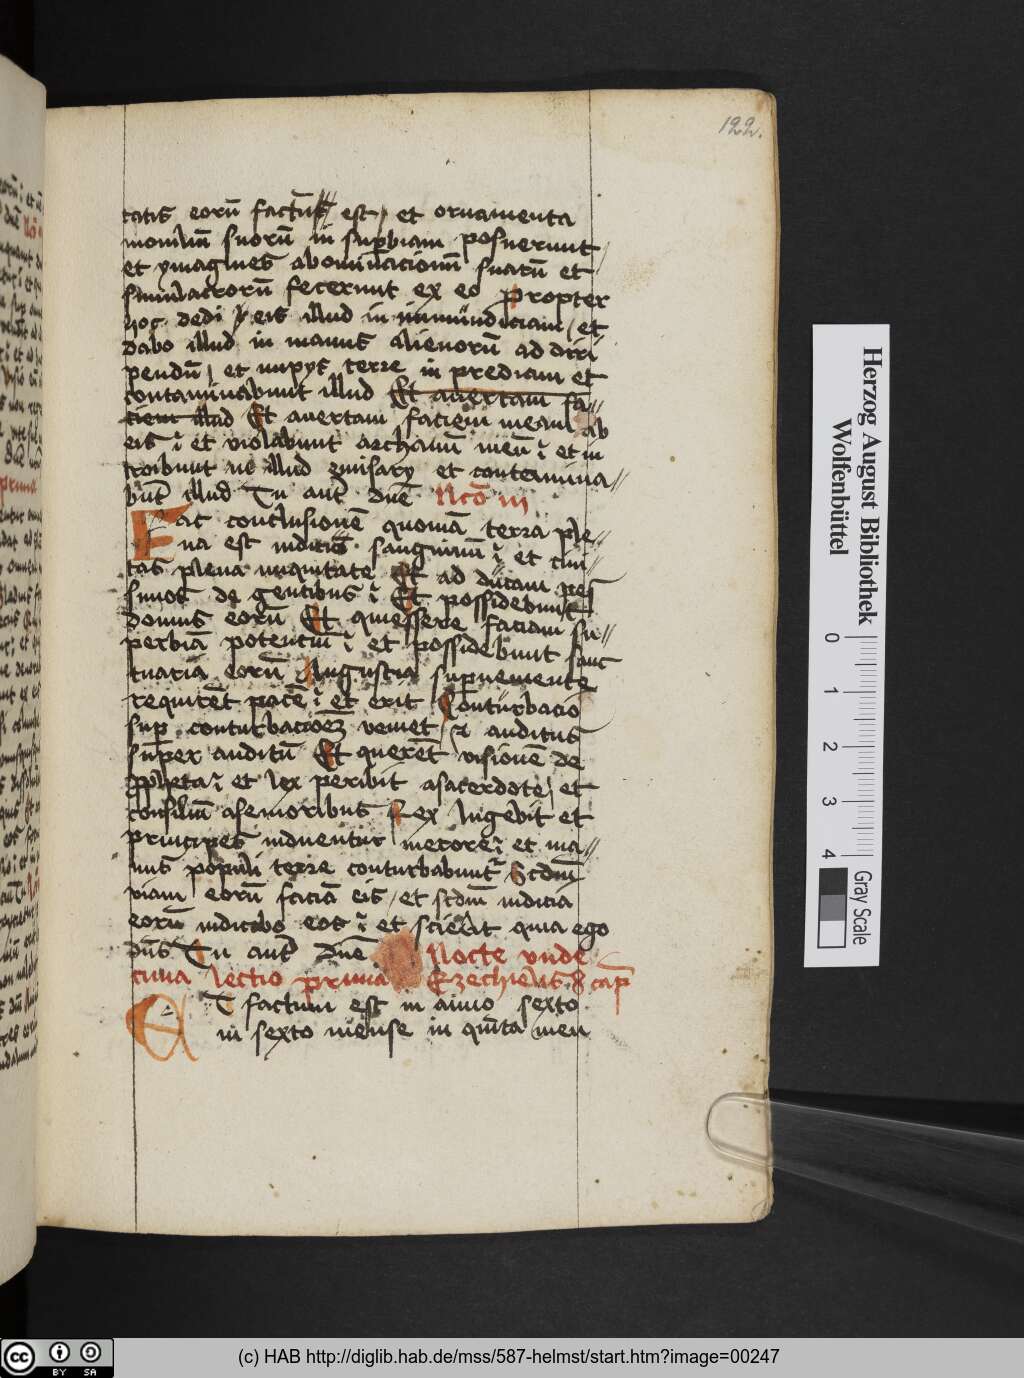 122.
tatis eorū factūs est et ornamenta
moniliū suorū in supbiam posuerunt
et ymagines abominacionū suarū et
simulacrorū fecerunt ex eo propter
hoc dedi eis illud in inmundiciam et
dabo illud in manus alienorū ad diri
piendū et impys terre in predam et
contaminabunt illud Et avertam fa
ciem illud Et avertam faciem meam ab
eis et violabunt archanū meū et in
troibunt in illud emissary et contamina
būt illud Tu aut dne lectio iii
Fac conclusionē quoniā terra ple
na est iudicio sanguinū et civi
tas plena iniquitate Et ad ducam pes
simos de gentibus Et possidebunt
domus eorū Et quiessere faciam su
perbiā potentiū et possidebunt sanc
tuaria eorū Angustia supveniente
requirēt pacē et erit Conturbacio
sup conturbacioēz veniet et auditus
super auditū Et querēt visionē de
ppheta et lex peribit asacerdote et
consiliū asenioribus Rex lugebit et
princeps induentur merore et ma
nus populi terre conturbabunt Scdm
viam eorū faciā eis et scdm iudicia
eorū iudicabo eos et scient quia ego
dns Tu aut Dne Nocte unde
cima lectio prima Ezechielis 8 cap
Et factum est in anno sexto
in sexto mense in quīta men
Herzog August Bibliothek
Wolfenbüttel
0 1 2 3 4
Gray Scale
cc BY SA
(c) HAB http://diglib.hab.de/mss/587-helmst/start.htm?image=00247